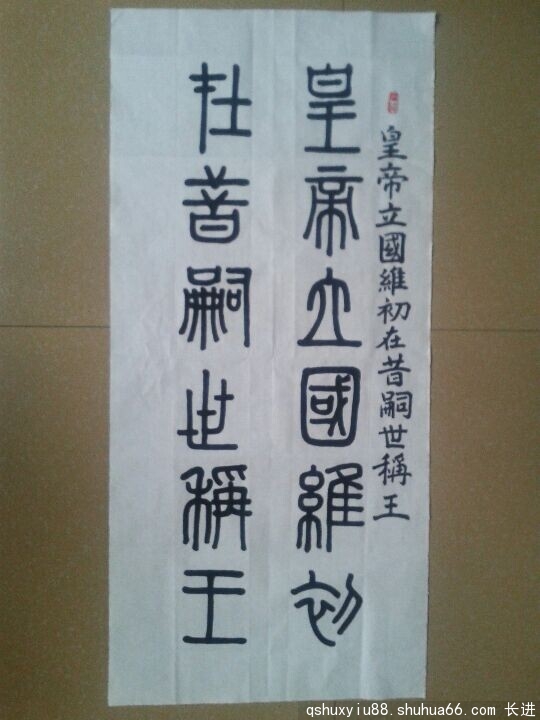 皇帝立國維初在昔嗣世稱王
皇帝立國維初
在昔嗣世稱王
qshuxyiu88.shuhua66.com 长进